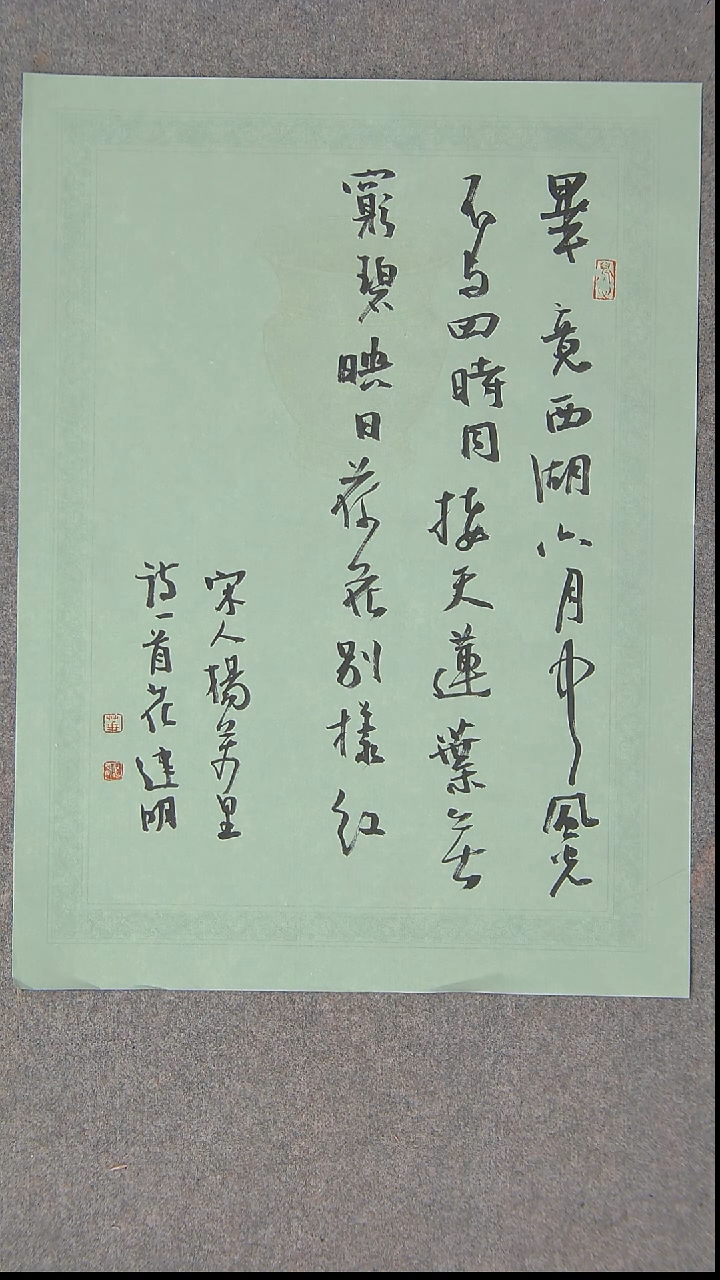 畢竟西湖六月中風光
不与四時同接天蓮葉無
窮碧映日荷花別樣紅
宋人楊萬里
詩一首明